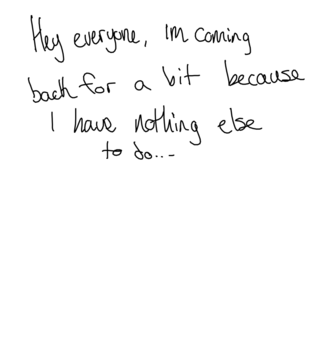 Hey everyone, Im coming
back for a bit because
I have nothing else
to do...-